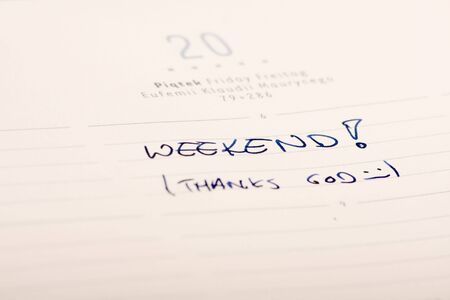 20
Piątek Friday Freitag
Eufemii Klaudii Maurycego
79+286
6
WEEKEND!
(THANKS GOD =))
7